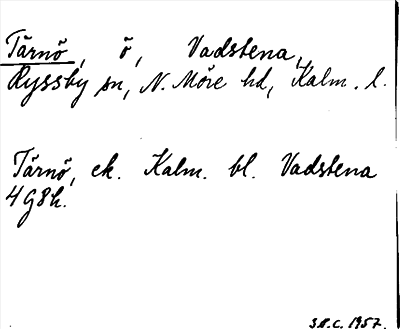 Tärnö, ö, Vadstena,
Ryssby sn, N. Möre hd, Kalm. l.
Tärnö, ek. Kalm. bl. Vadstena
4 G 8 h.
1957.